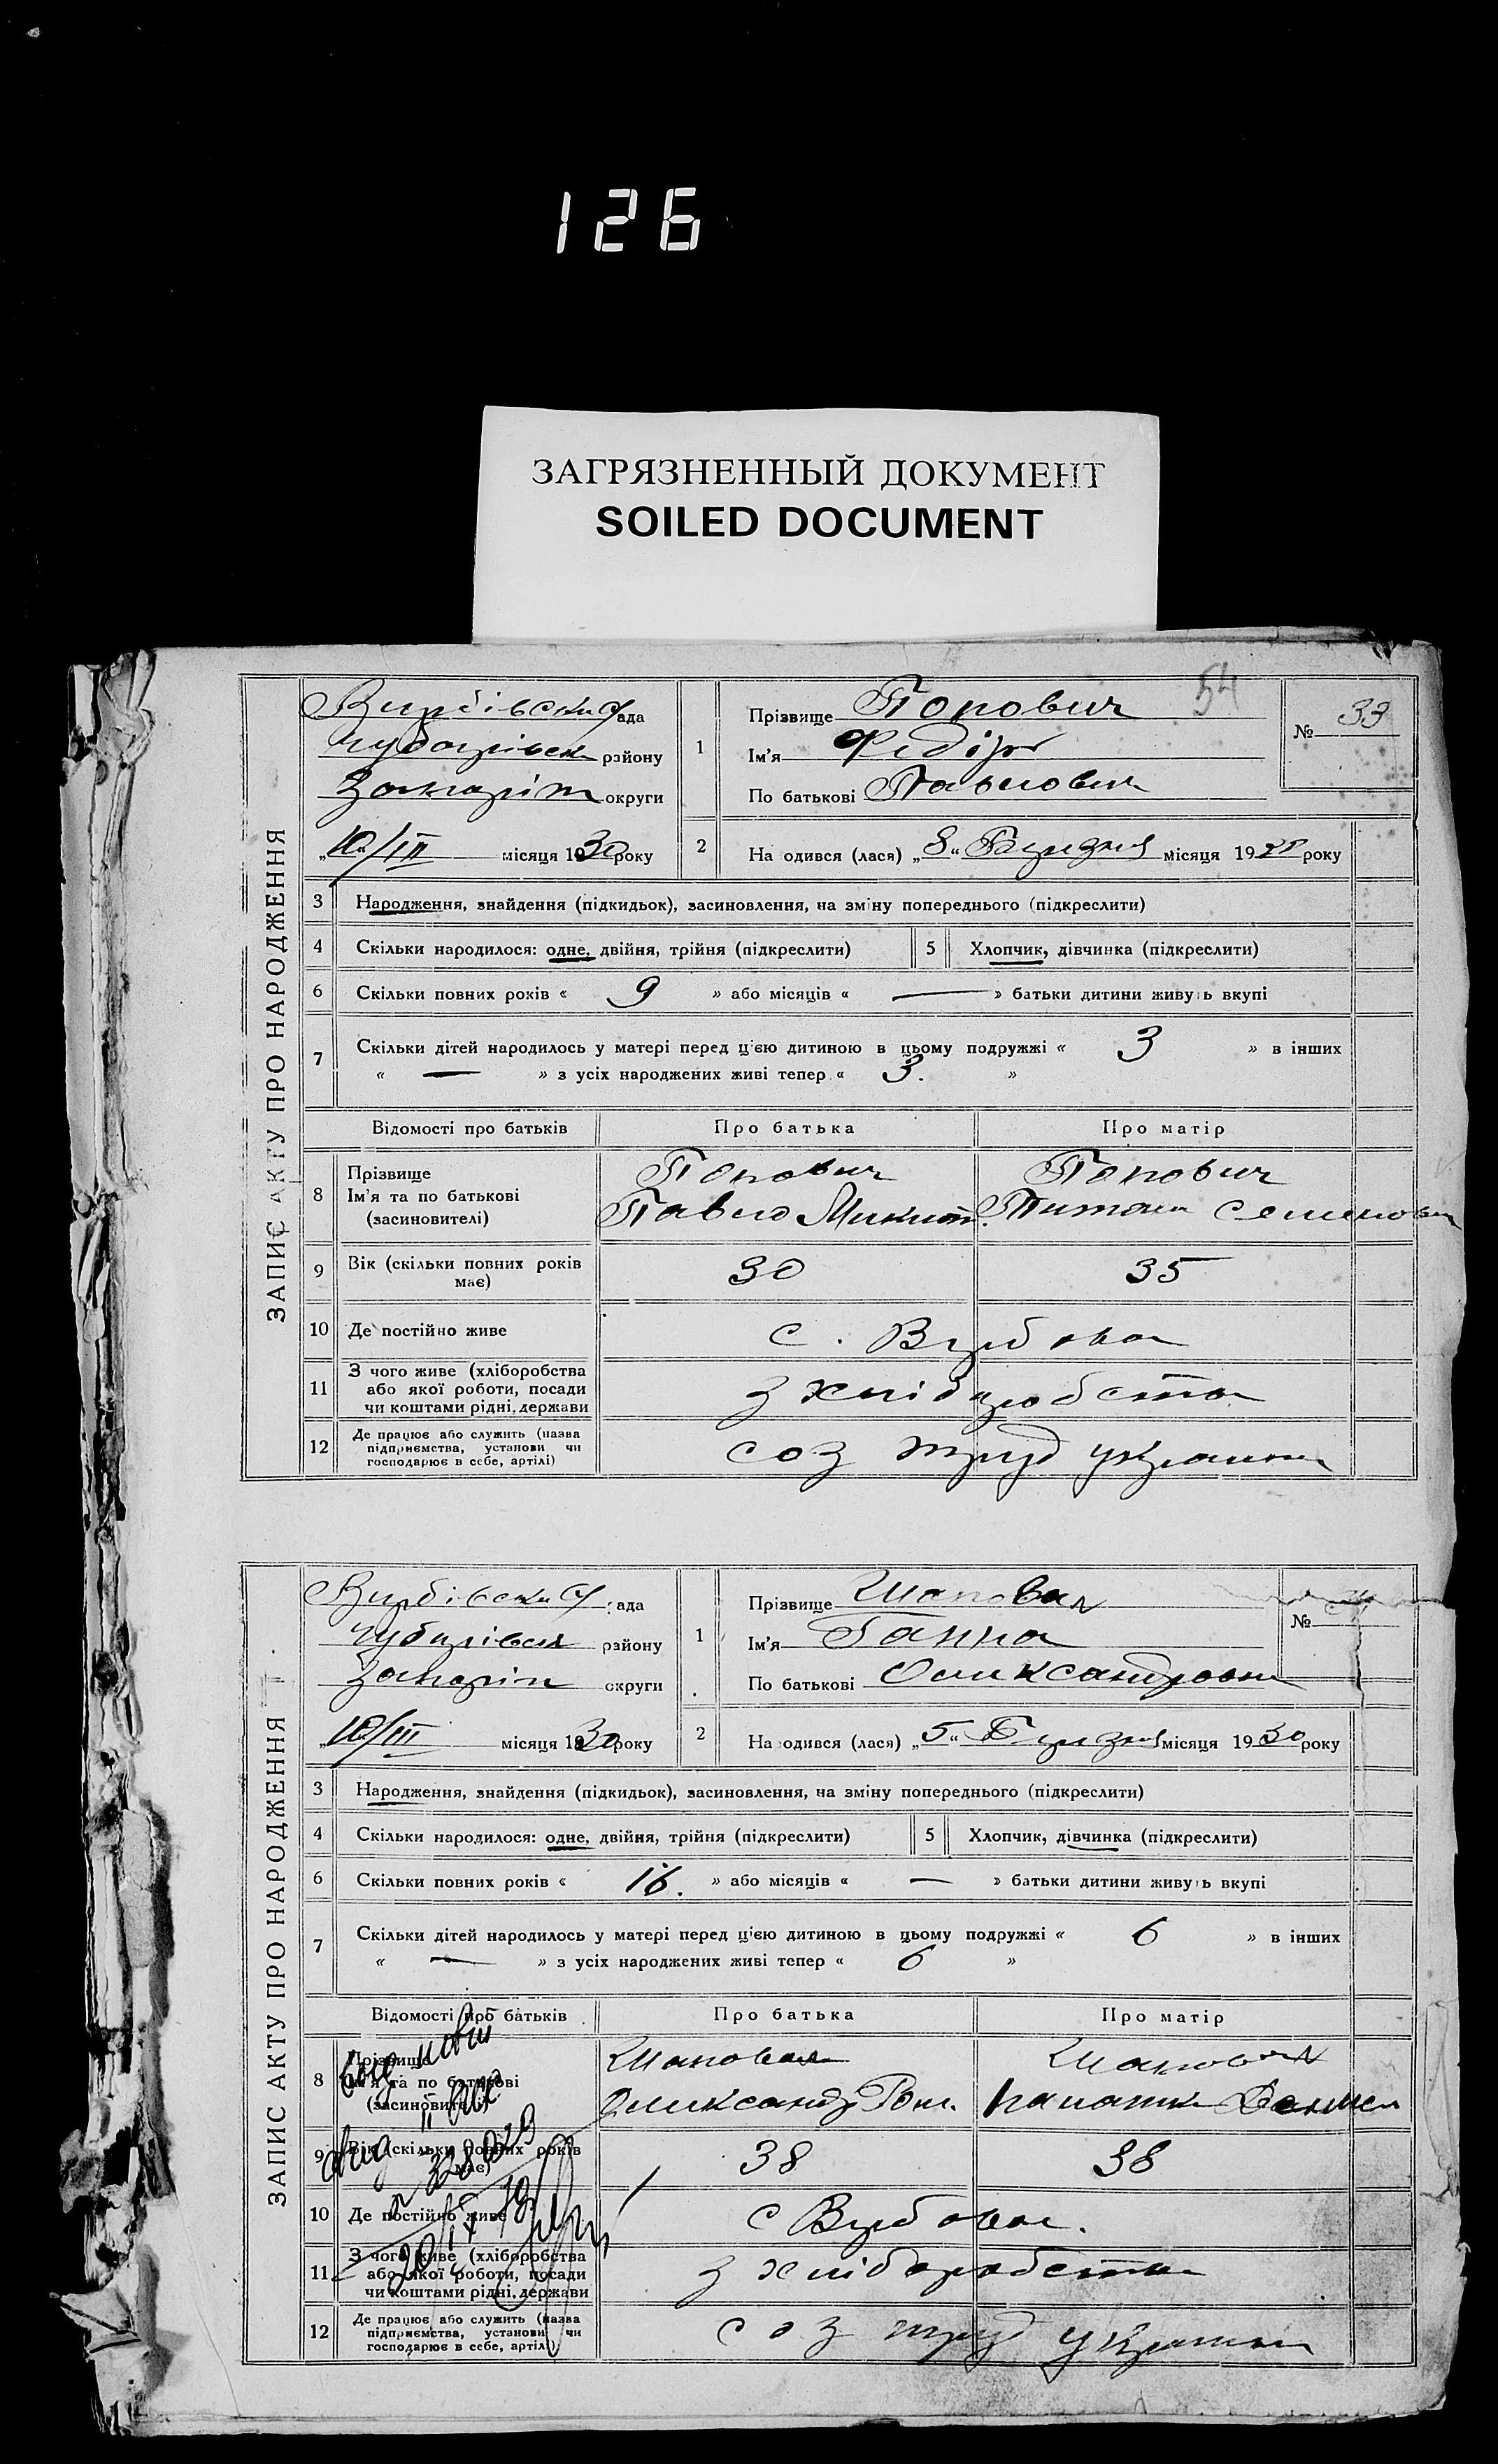 126
ЗАГРЯЗНЕННЫЙ ДОКУМЕНТ
SOILED DOCUMENT
54
ЗАПИС АКТУ ПРО НАРОДЖЕННЯ
Вирбівськ рада
району
округи
10/III місяця 1930 року
1 Прізвище Попович
Ім'я Федір
По батькові Павлович
№ 33
2 На одився (лася) „8“ Березня місяця 19 року
3 Народження, знайдення (підкидьок), засиновлення, на зміну попереднього (підкреслити)
4 Скільки народилося: одне, двійня, трійня (підкреслити) 5 Хлопчик, дівчинка (підкреслити)
6 Скільки повних років « 9 » або місяців « — » батьки дитини живуть вкупі
7 Скільки дітей народилось у матері перед цією дитиною в цьому подружжі « 3 » в інших
« — » з усіх народжених живі тепер « 3. »
Відомості про батьків Про батька Про матір
8 Прізвище Попович Попович
Ім'я та по батькові Павло Микит.
(засиновителі)
9 Вік (скільки повних років має) 30 35
10 Де постійно живе с. Вербова
11 З чого живе (хліборобства
або якої роботи, посади
чи коштами рідні, держави з хліборобства
12 Де працює або служить (назва
підприємства, установи чи
господарює в себе, артілі) соз труд україни
ЗАПИС АКТУ ПРО НАРОДЖЕННЯ
Вирбівськ рада
району
округи
10/III місяця 1930 року
1 Прізвище Шаповал
Ім'я Ганна
По батькові Олександровна
№
2 На одився (лася) „5“ Березня місяця 1930 року
3 Народження, знайдення (підкидьок), засиновлення, на зміну попереднього (підкреслити)
4 Скільки народилося: одне, двійня, трійня (підкреслити) 5 Хлопчик, дівчинка (підкреслити)
6 Скільки повних років « 16. » або місяців « — » батьки дитини живуть вкупі
7 Скільки дітей народилось у матері перед цією дитиною в цьому подружжі « 6 » в інших
« — » з усіх народжених живі тепер « 6 »
Відомості про батьків Про батька Про матір
8 Прізвище Шаповал Шаповал
Ім'я та по батькові Олександр
(засиновителі)
9 Вік (скільки повних років має) 38 38
10 Де постійно живе с Вербова.
11 З чого живе (хліборобства
або якої роботи, посади
чи коштами рідні, держави з хліборобства
12 Де працює або служить (назва
підприємства, установи чи
господарює в себе, артілі) соз труд україни